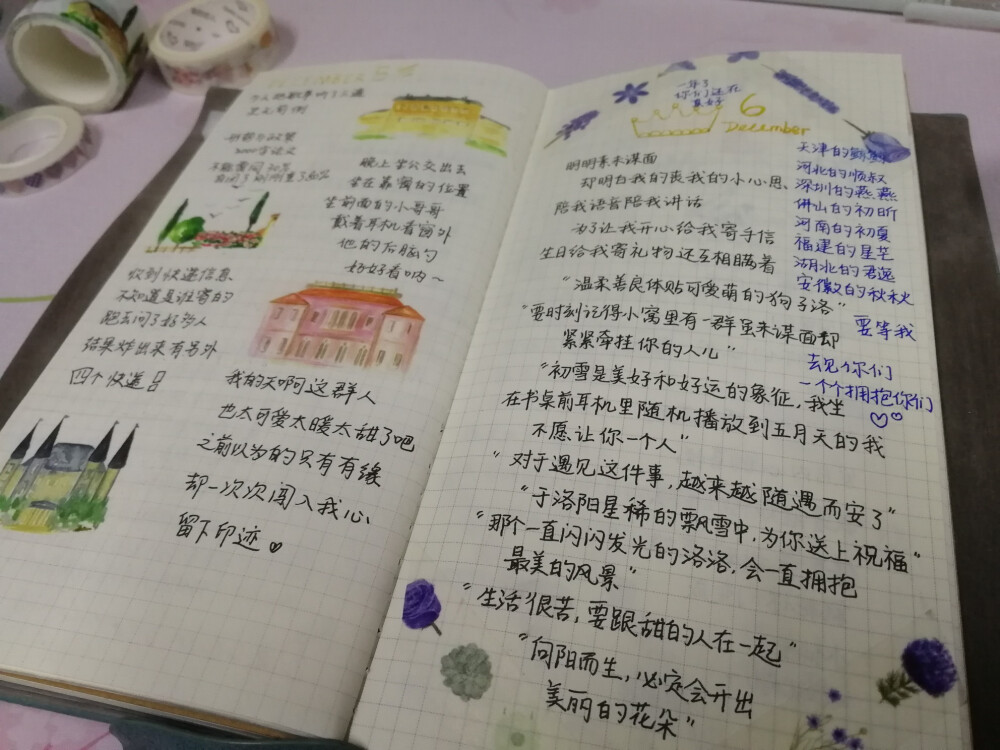 DECEMBER
晚上坐公交出去
坐在靠窗的位置
坐前面的小哥哥
戴着耳机看窗外
他的后脑勺
好好看呐~
收到快递信息
不知道是谁寄的
跑去问了好多人
结果炸出来有另外
四个快递
我的天啊这群人
也太可爱太暖太甜了吧
之前以为的只有有缘
却一次次闯入我心
留下印迹
一年了
你们还在
真好
6
December
明明素未谋面
却明白我的丧我的小心思
陪我语音陪我讲话
为了让我开心给我寄手信
生日给我寄礼物还互相瞒着
“温柔善良体贴可爱萌的狗子洛”
“要时刻记得小窝里有一群虽未谋面却
紧紧牵挂你的人儿”
“初雪是美好和好运的象征,我坐
在书桌前耳机里随机播放到五月天的我
不愿让你一个人”
“对于遇见这件事,越来越随遇而安了”
“于洛阳星稀的飘雪中,为你送上祝福”
“那个一直闪闪发光的洛洛,会一直拥抱
最美的风景”
“生活很苦,要跟甜的人在一起”
“向阳而生,必定会开出
美丽的花朵”
天津的
河北的顺叔
深圳的燕燕
佛山的初昕
河南的初夏
福建的星芒
湖北的君逸
安徽的秋秋
要等我
去见你们
一个个拥抱你们